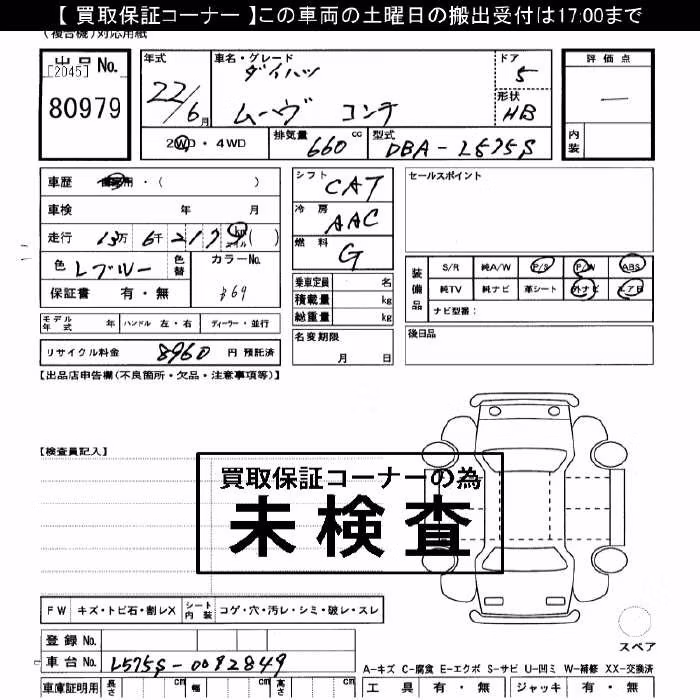 【 買取保証コーナー 】この車両の土曜日の搬出受付は17:00まで
(複合機)対応用紙
出品 No.
[2045]
80979
年式
22/6月
車名・グレード
ダイハツ
ムーヴ コンテ
ドア
5
形状
HB
評価点
—
内装
2WD・4WD
排気量
660 cc
型式
DBA-L575S
車歴 ・( )
車検 年 月
走行 13万 6千 217 km マイル( )
色 Lブルー
色替
カラーNo.
保証書 有・無
シフト CAT
冷房 AAC
燃料 G
乗車定員 名
積載量 kg
総重量 kg
セールスポイント
装備品
S/R 純A/W P/S P/W ABS
純TV 純ナビ 革シート 外ナビ エアB
ナビ型番:
モデル年式 年 ハンドル 左・右 ディーラー・並行
名変期限
月 日
後日品
リサイクル料金 8960 円 預託済
【出品店申告欄(不良箇所・欠品・注意事項等)】
【検査員記入】
買取保証コーナーの為
未検査
FW キズ・トビ石・割レX シート内装 コゲ・穴・汚レ・シミ・破レ・スレ
スペア
登録 No.
車台 No. L575S-0082849
A-キズ C-腐食 E-エクボ S-サビ U-凹ミ W-補修 XX-交換済
車庫証明用 長さ cm 幅 cm 高さ cm
工具 有・無 ジャッキ 有・無